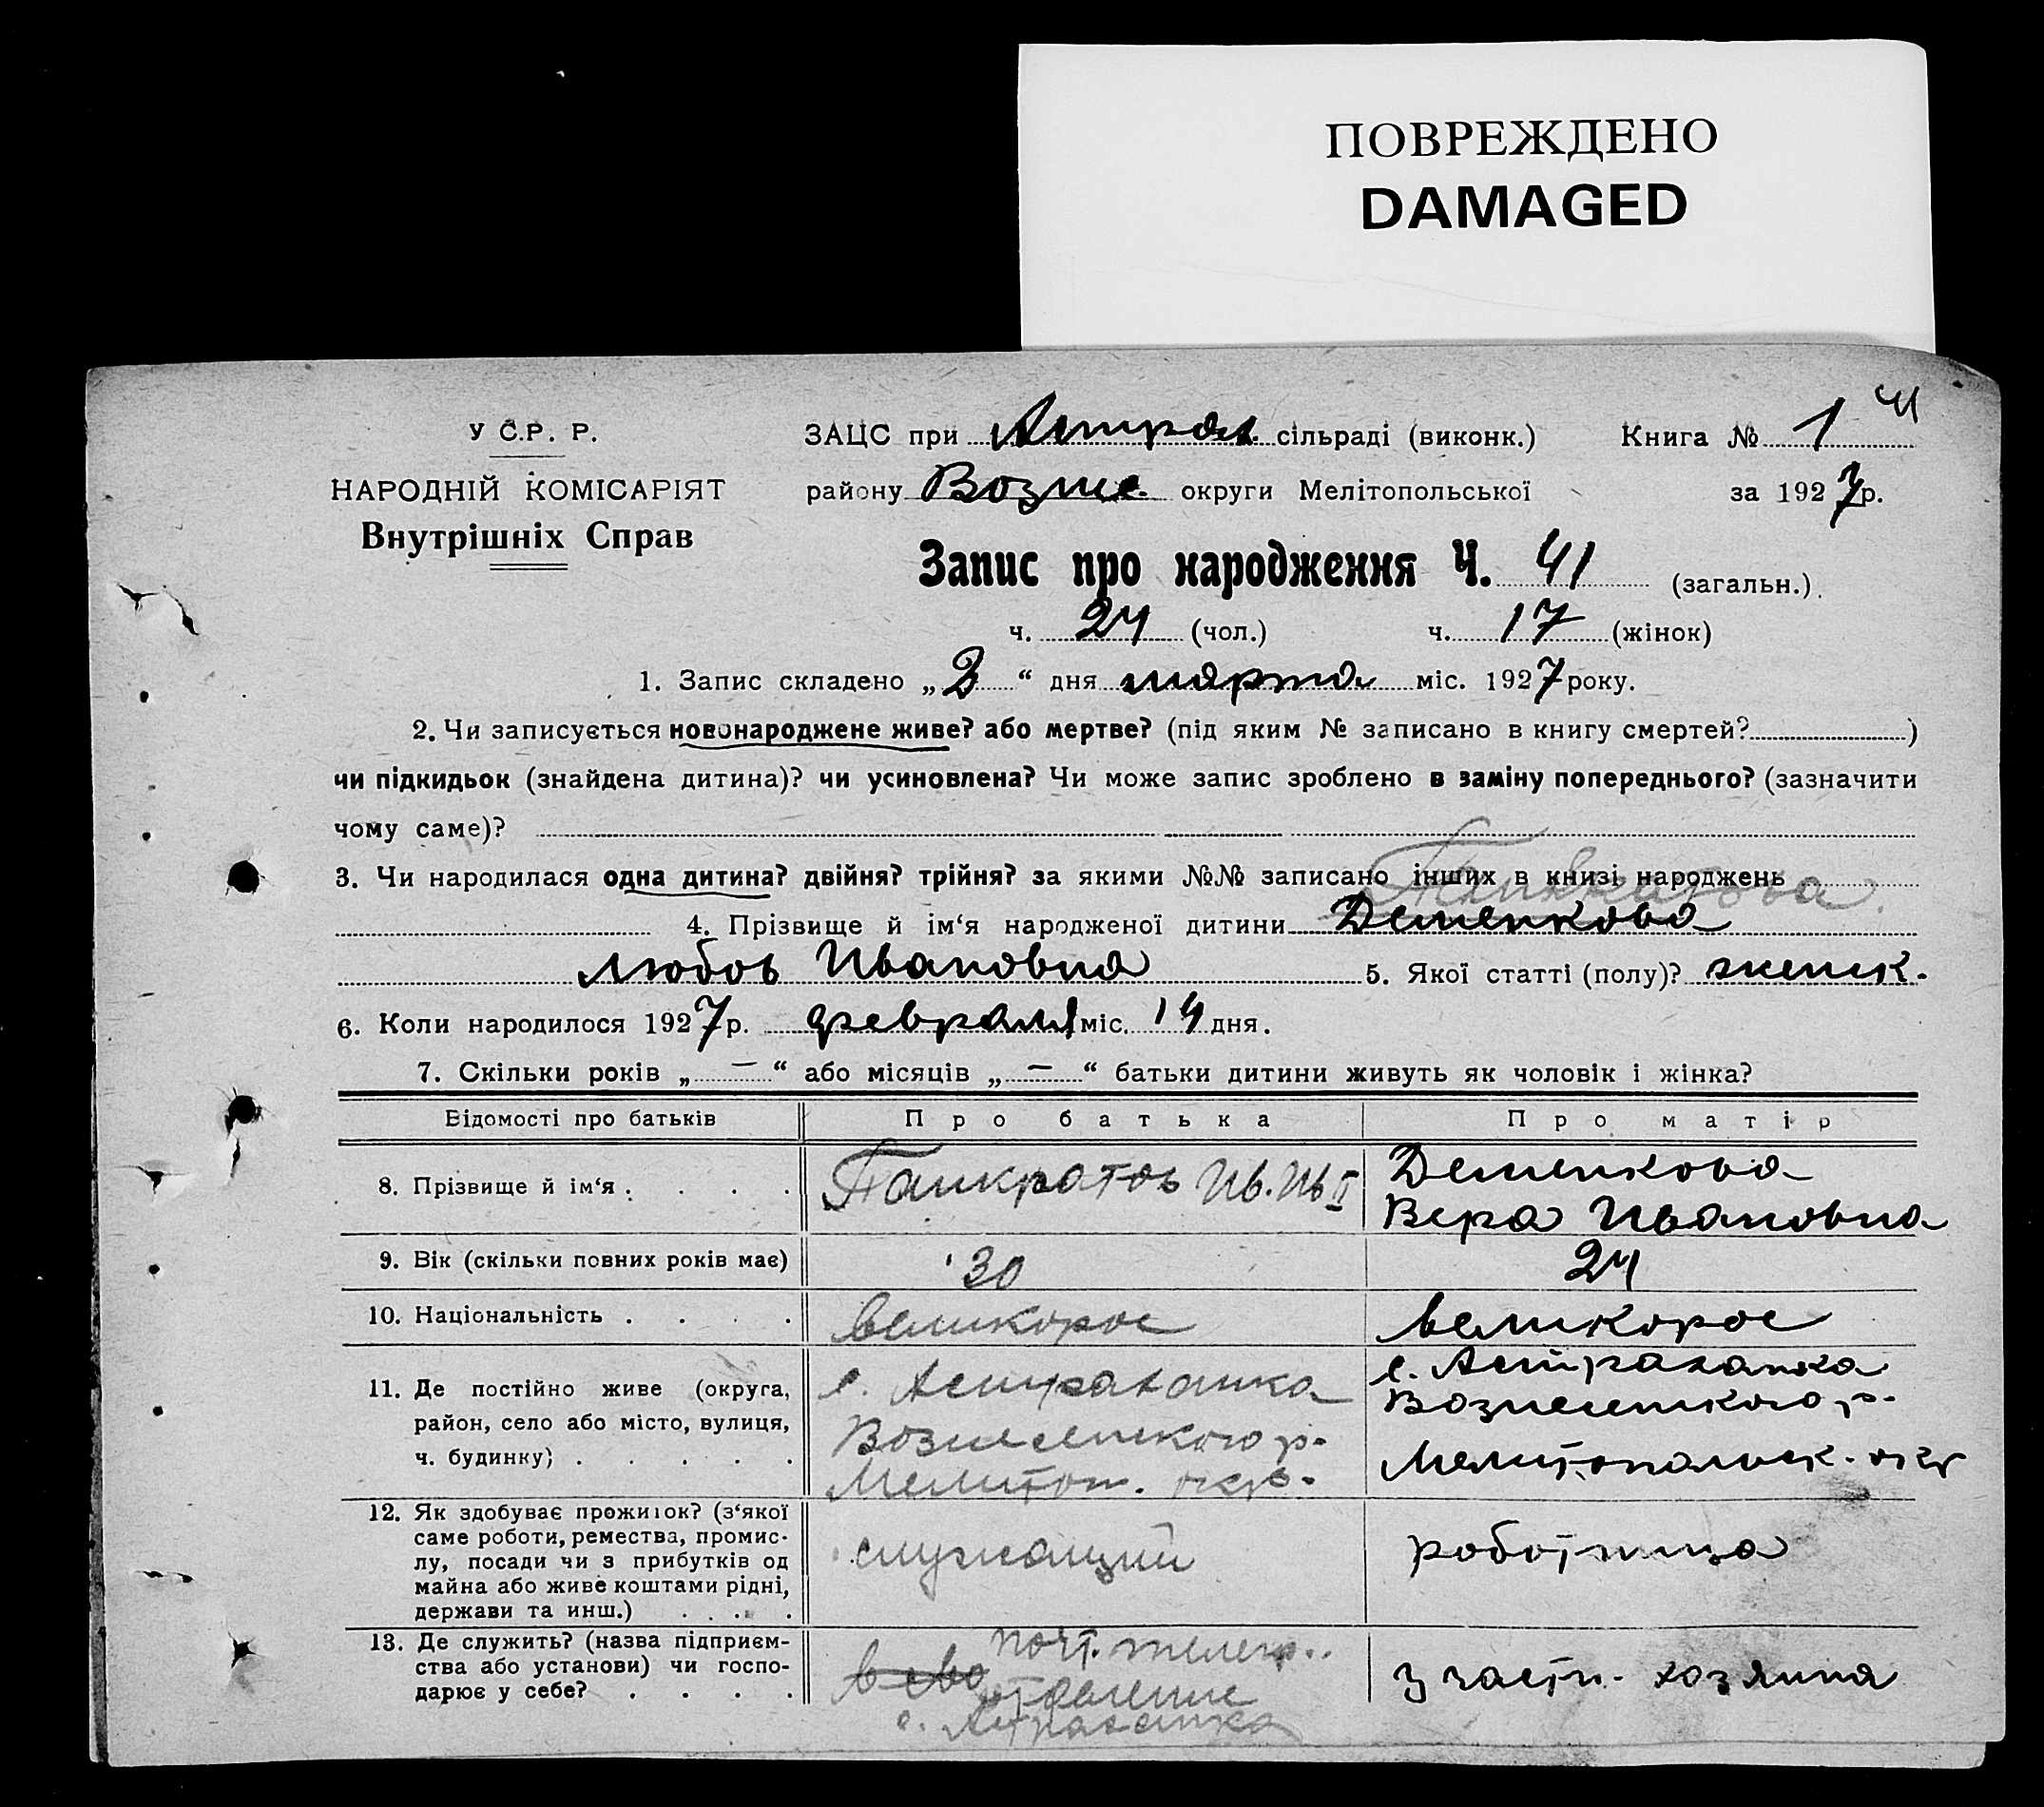 ПОВРЕЖДЕНО
DAMAGED
41
У С.Р. Р. ЗАЦС при Астрах. сільраді (виконк.) Книга № 1
НАРОДНІЙ КОМІСАРІЯТ району Возне. округи Мелітопольської за 1927 р.
Внутрішніх Справ
Запис про народження Ч. 41 (загальн.).
ч. 24 (чол.) ч. 17 (жінок)
1. Запис складено „ 3 “ дня марта міс. 1927 року.
2. Чи записується новонароджене живе? або мертве? (під яким № записано в книгу смертей? )
чи підкидьок (знайдена дитина)? чи усиновлена? Чи може запис зроблено в заміну попереднього? (зазначити
чому саме)?
3. Чи народилася одна дитина? двійня? трійня? за якими №№ записано інших в книзі народжень
Панкратова.
4. Прізвище й ім‘я народженої дитини Деменкова
Любовь Ивановна 5. Якої статті (полу)? женск.
6. Коли народилося 1927 р. февраля міс. 14 дня.
7. Скільки років „ — “ або місяців „ — “ батьки дитини живуть як чоловік і жінка?
Відомості про батьків Про батька Про матір
8. Прізвище й ім‘я . . . . Панкратов Ив. Ив II Деменкова
Вера Ивановна
9. Вік (скільки повних років має) 30 24
10. Національність . . . . великорос великорос
11. Де постійно живе (округа, с. Астраханка с. Астраханка
район, село або місто, вулиця, Вознесенского р. Вознесенского р.
ч. будинку) . . . . . Мелитоп. окр. Мелитопольск. окр
12. Як здобуває прожиток? (з‘якої
саме роботи, ремества, промис-
лу, посади чи з прибутків од служащий работница
майна або живе коштами рідні,
держави та инш.) . . . .
13. Де служить? (назва підприєм- почт. телегр..
ства або установи) чи госпо- отделение у частн. хозяина
дарює у себе? . . . . с. Астраханка